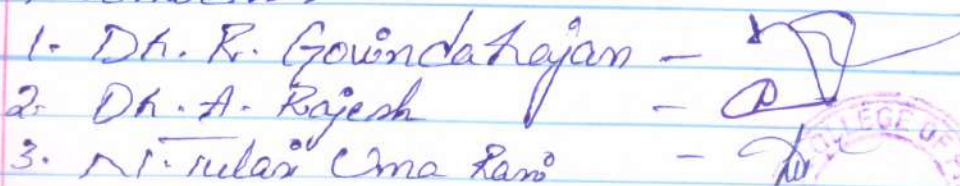 1. Dr. R. Govindarajan -
2. Dr. A. Rajesh -
3. Uma Rani -
COLLEGE OF